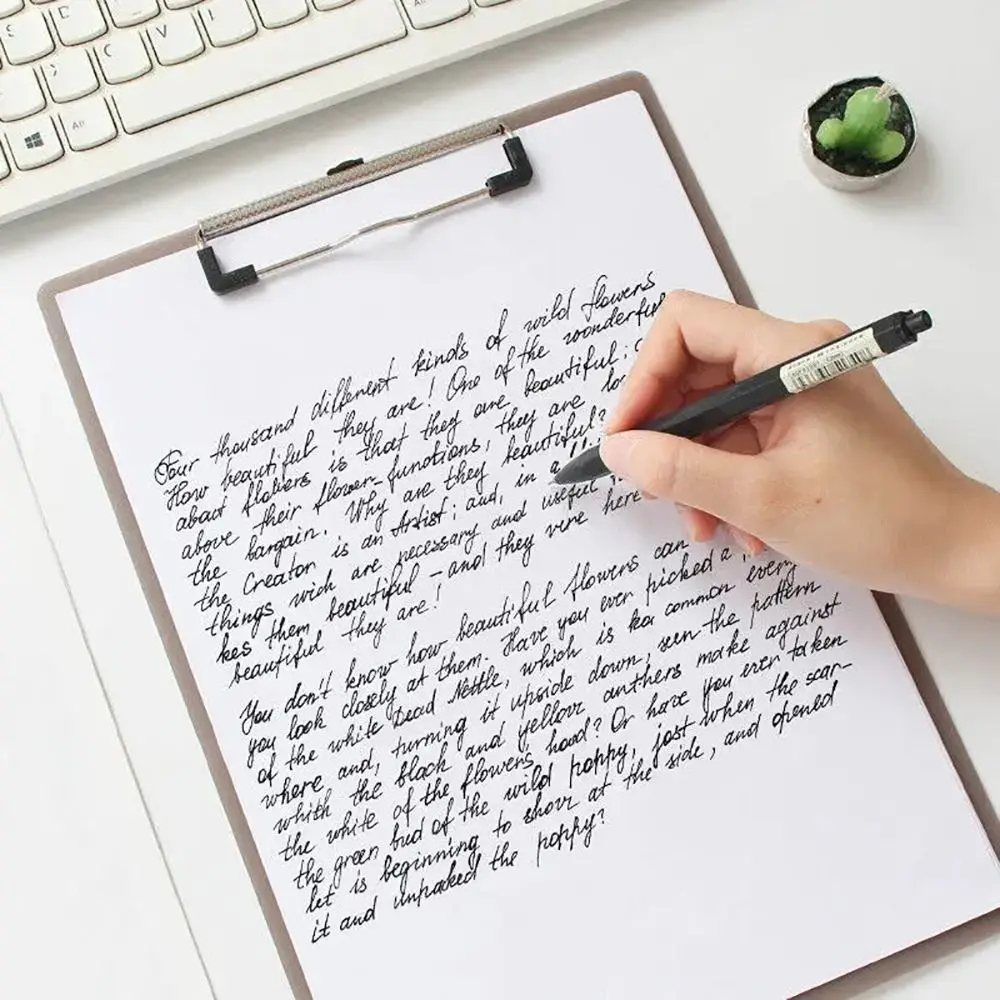 Four thousand different kinds of wild flowers
How beautiful they are! One of the wonderful
about flowers is that they are beautiful;
above their flower-functions, they are
the bargain. Why are they beautiful?
the Creator is an Artist; and, in
things wich are necessary and useful
kes them beautiful - and they vire here
beautiful they are!
You don't know how beautiful flowers can
you look closely at them. Have you ever picked a
of the white Dead Nettle, which is so common every
where and, turning it upside down, seen the pattern
which the black and yellow anthers make against
the white of the flowers hood? Or have you ever taken
the green bud of the wild poppy, just when the scar-
let is beginning to show at the side, and opened
it and unpacked the poppy?
Alt